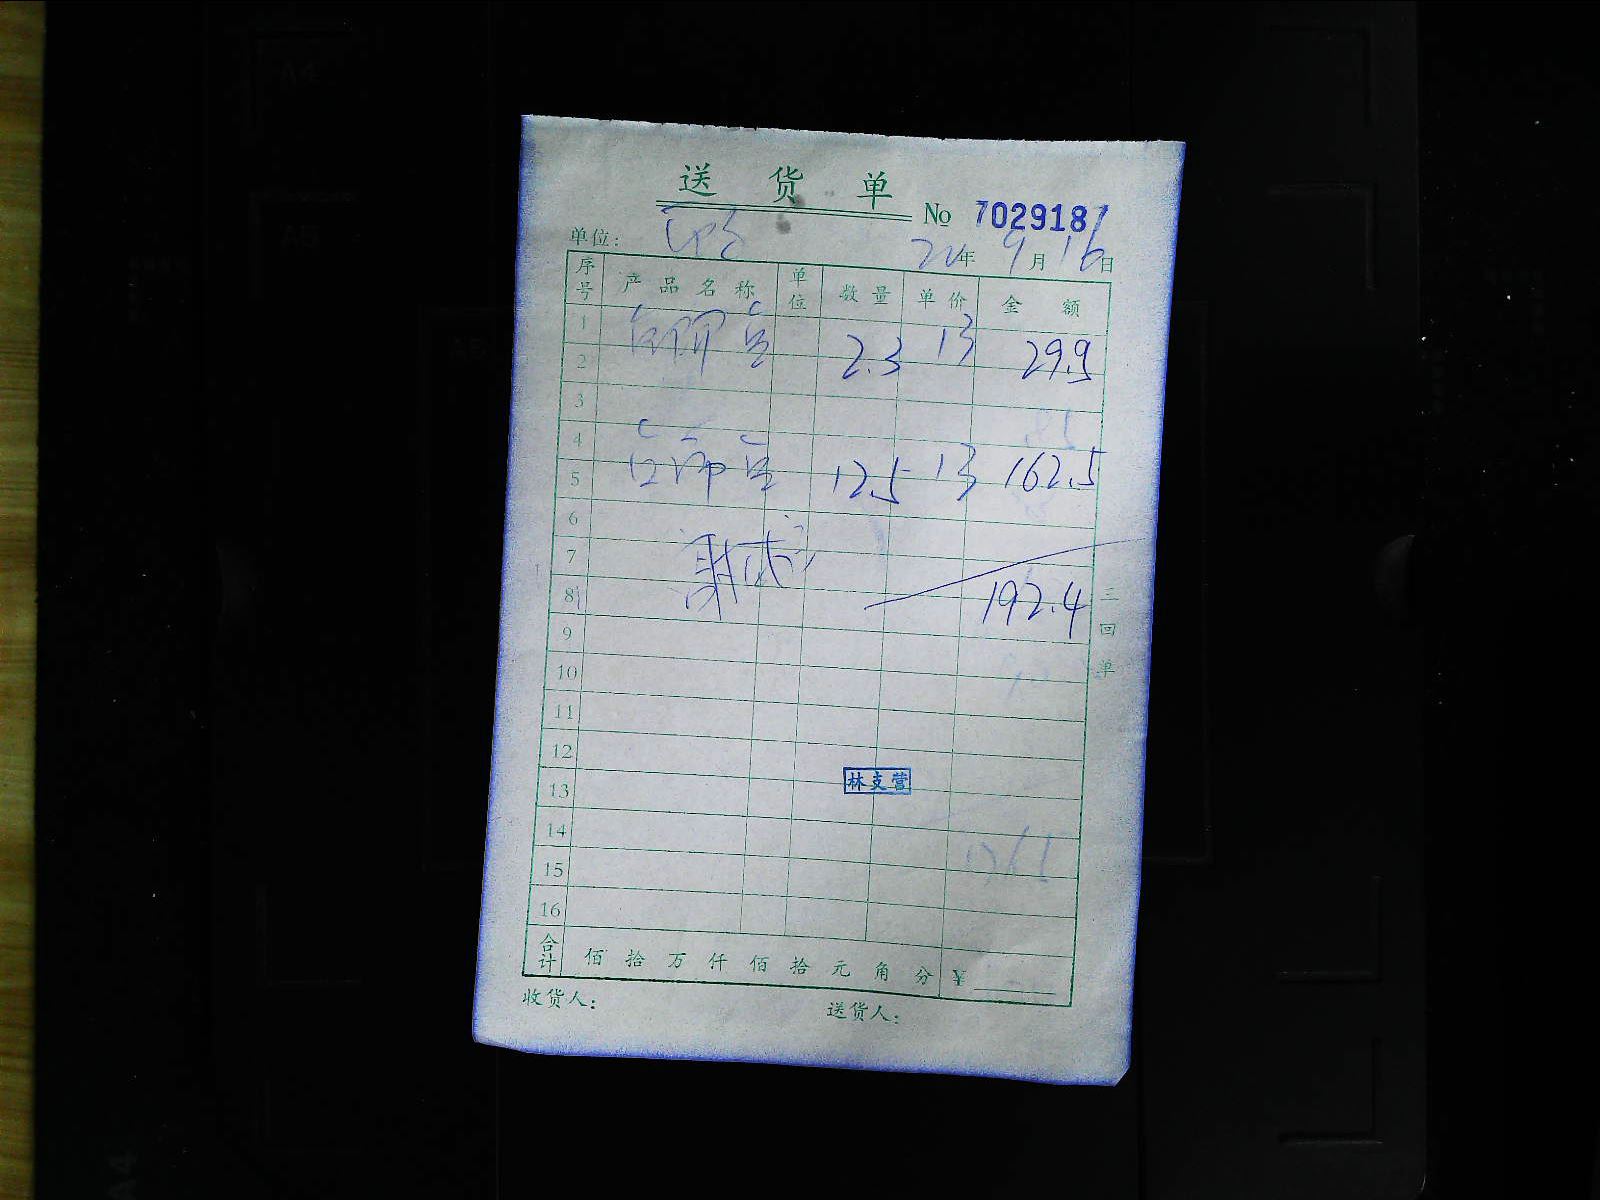 送货单
No 7029187
单位: 20年9月16日
序号 产品名称 单位 数量 单价 金额
1
2 2.3 13 29.9
3
4
5 12.5 13 162.5
6
7
8 192.4
9
10
11
12
13 林支营
14
15
16
合计 佰拾万仟佰拾元角分 ¥
收货人: 送货人:
三回单